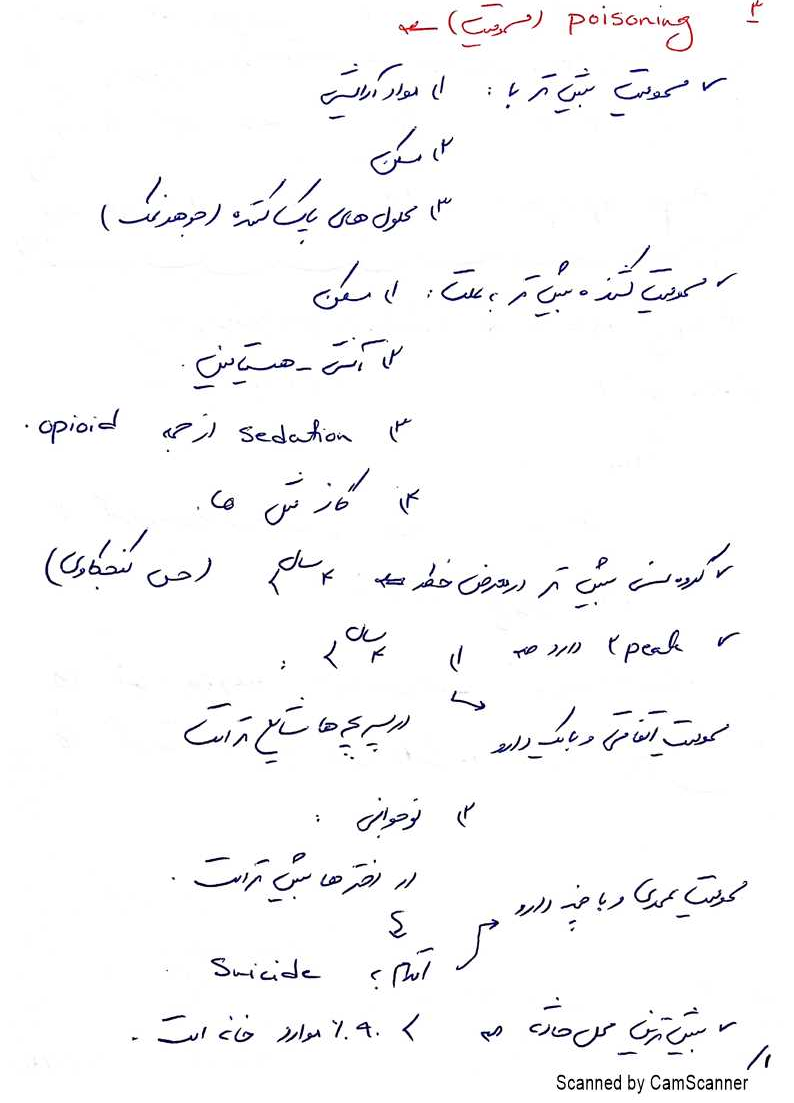 ۳
poisoning (مسمومیت) ⇐
✓ مسمومیت بیش تر با : ۱) مواد آرایشی
۲) مسکن
۳) محلول های پاک کننده (جوهر نمک)
✓ مسمومیت کشنده بیش تر به علت : ۱) مسکن
۲) آنتی - هیستامین .
۳) sedation از جمله opioid .
۴) گاز شیمی ها .
✓ گروه سنی بیش تر در معرض خطر ⇐ ۴ سال > (حس کنجکاوی)
✓ ۲ peak دارد ⇐ ۱) ۴ سال > :
مسمومیت اتفاقی و با یک دارو در پسر بچه ها شایع تر است
۲) نوجوانی :
در دختر ها بیش تر است .
مسمومیت عمدی و با چند دارو
اقدام به Suicide .
✓ بیش ترین محل حادثه ⇐ > ۹۰٪ موارد خانه است .
۱/
Scanned by CamScanner